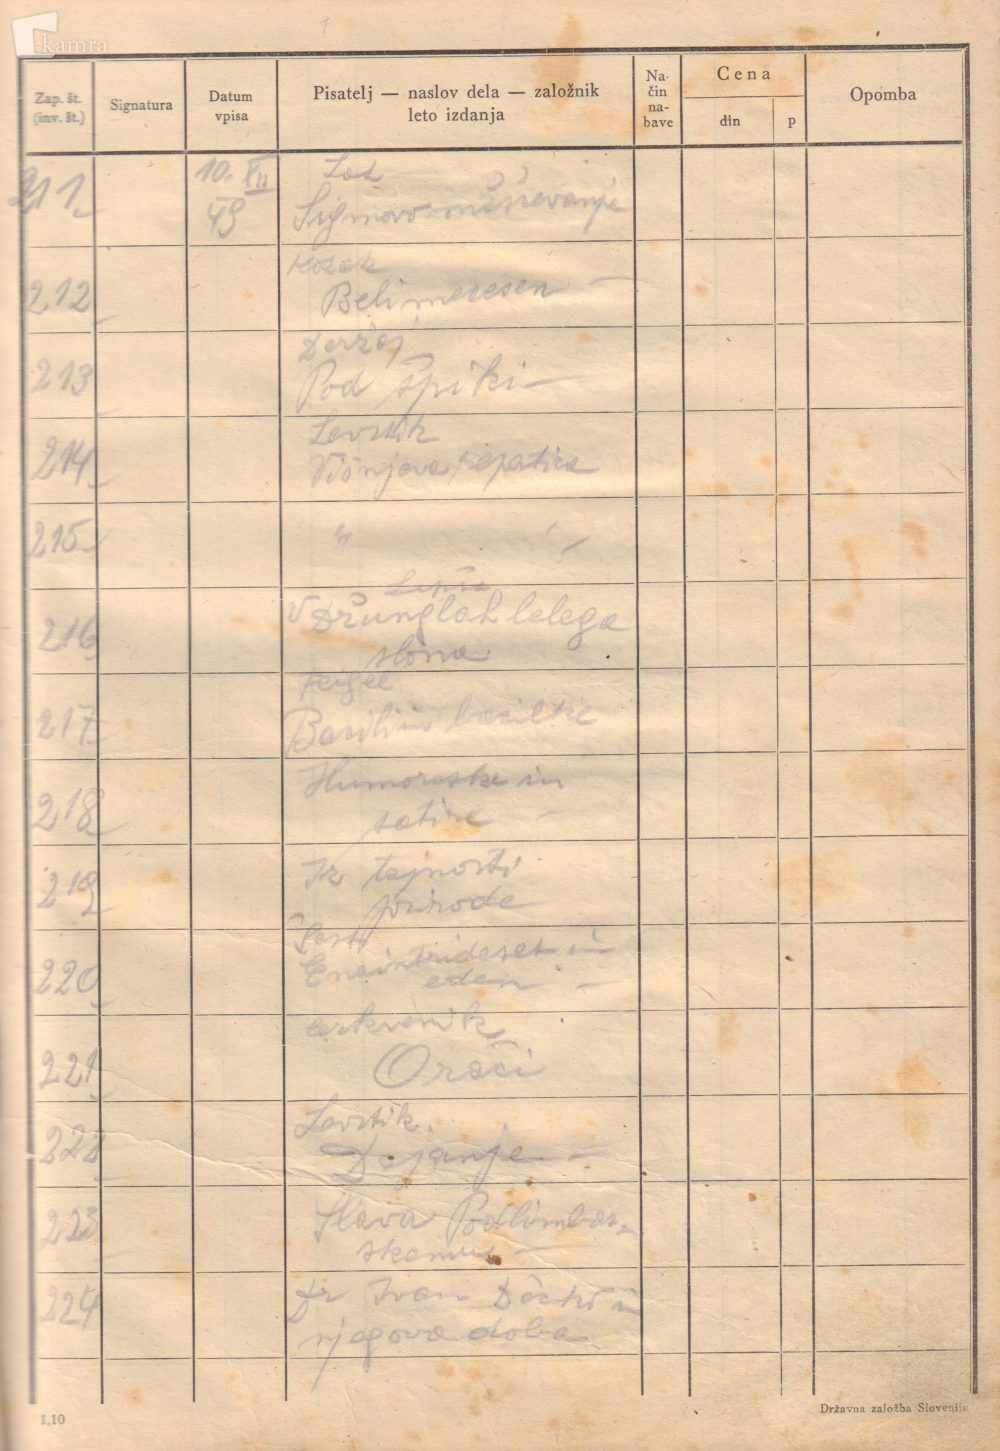 kamra
Zap. št.
(inv. št.)
Signatura
Datum
vpisa
Pisatelj — naslov dela — založnik
leto izdanja
Na-
čin
na-
bave
Cena
din
p
Opomba
211
10. XII
49
Sigmovo maščevanje
212
Kozak
Beli mecesen —
213
Deržaj
Pod špiki —
214
Levstik
Višnjeva repatica
215
" "
216
V Džunglah belega
slona
217
Bacili in bacilke
218
Humoreske in
satire —
219
Iz tajnosti
prirode
220
Enaintrideset in
eden —
221
Cerkvenik
Orači
222
Levstik
Dejanje —
223
Slava Podlimbar-
skemu —
224
Dr Ivan
njegova doba
1,10
Državna založba Slovenije